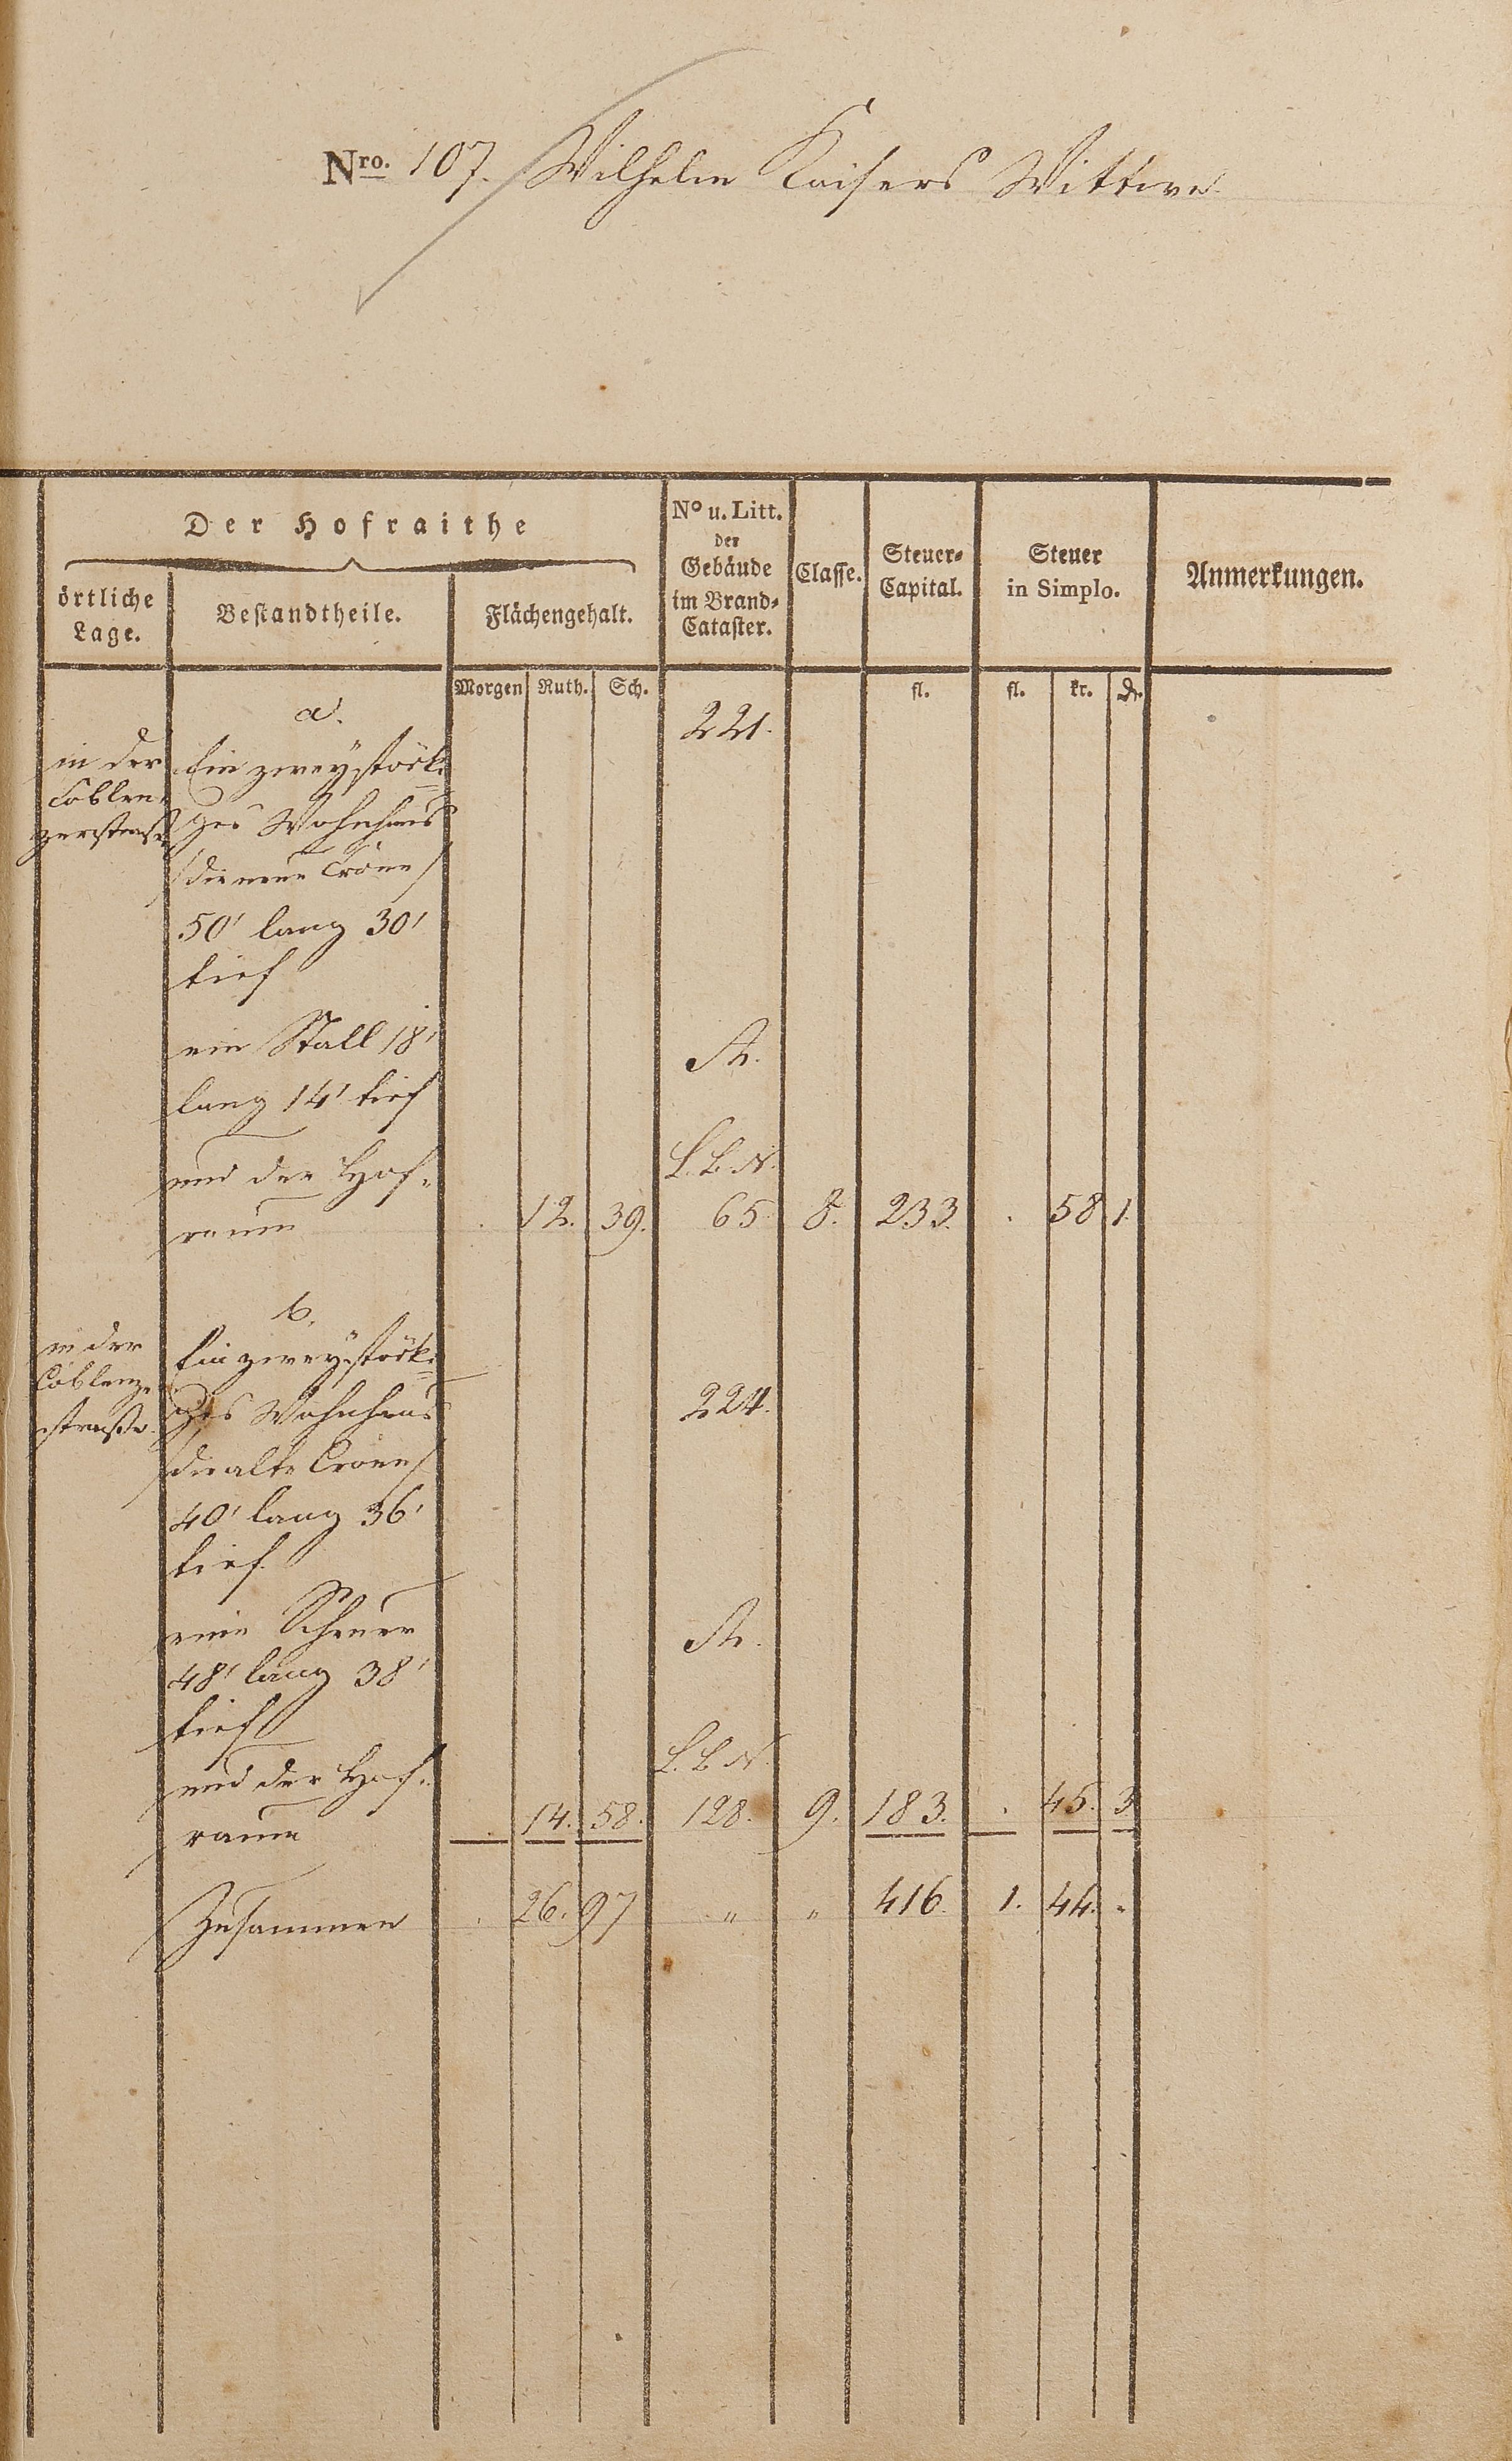 Nro. 107. Wilhelm Kaisers Wittwe
Der Hofraithe
örtliche Lage.
Bestandtheile.
Flächengehalt.
No u. Litt. der Gebäude im Brand-Cataster.
Classe.
Steuer-Capital.
Steuer in Simplo.
Anmerkungen.
Morgen Ruth. Sch. fl. fl. kr. d.
a. 221.
in der Ein zweystöcki
Coblen- ges Wohnhaus
zerstraße /die neue Crone/
50' lang 30'
tief
ein Stall 18' A.
lang 14' tief
und der Hof- L. B. N.
raum . 12. 39. 65 8. 233. . 58 1.
b.
in der Ein zweystöcki
Coblenze ges Wohnhaus 224.
straße. /die alte Crone/
40' lang 36'
tief.
eine Scheuer A.
48' lang 38'
tief
und der Hof- L. B. N.
raum . 14. 58. 128. 9. 183. . 45. 3
Zusammen . 26. 97 " " 416. 1. 44. "